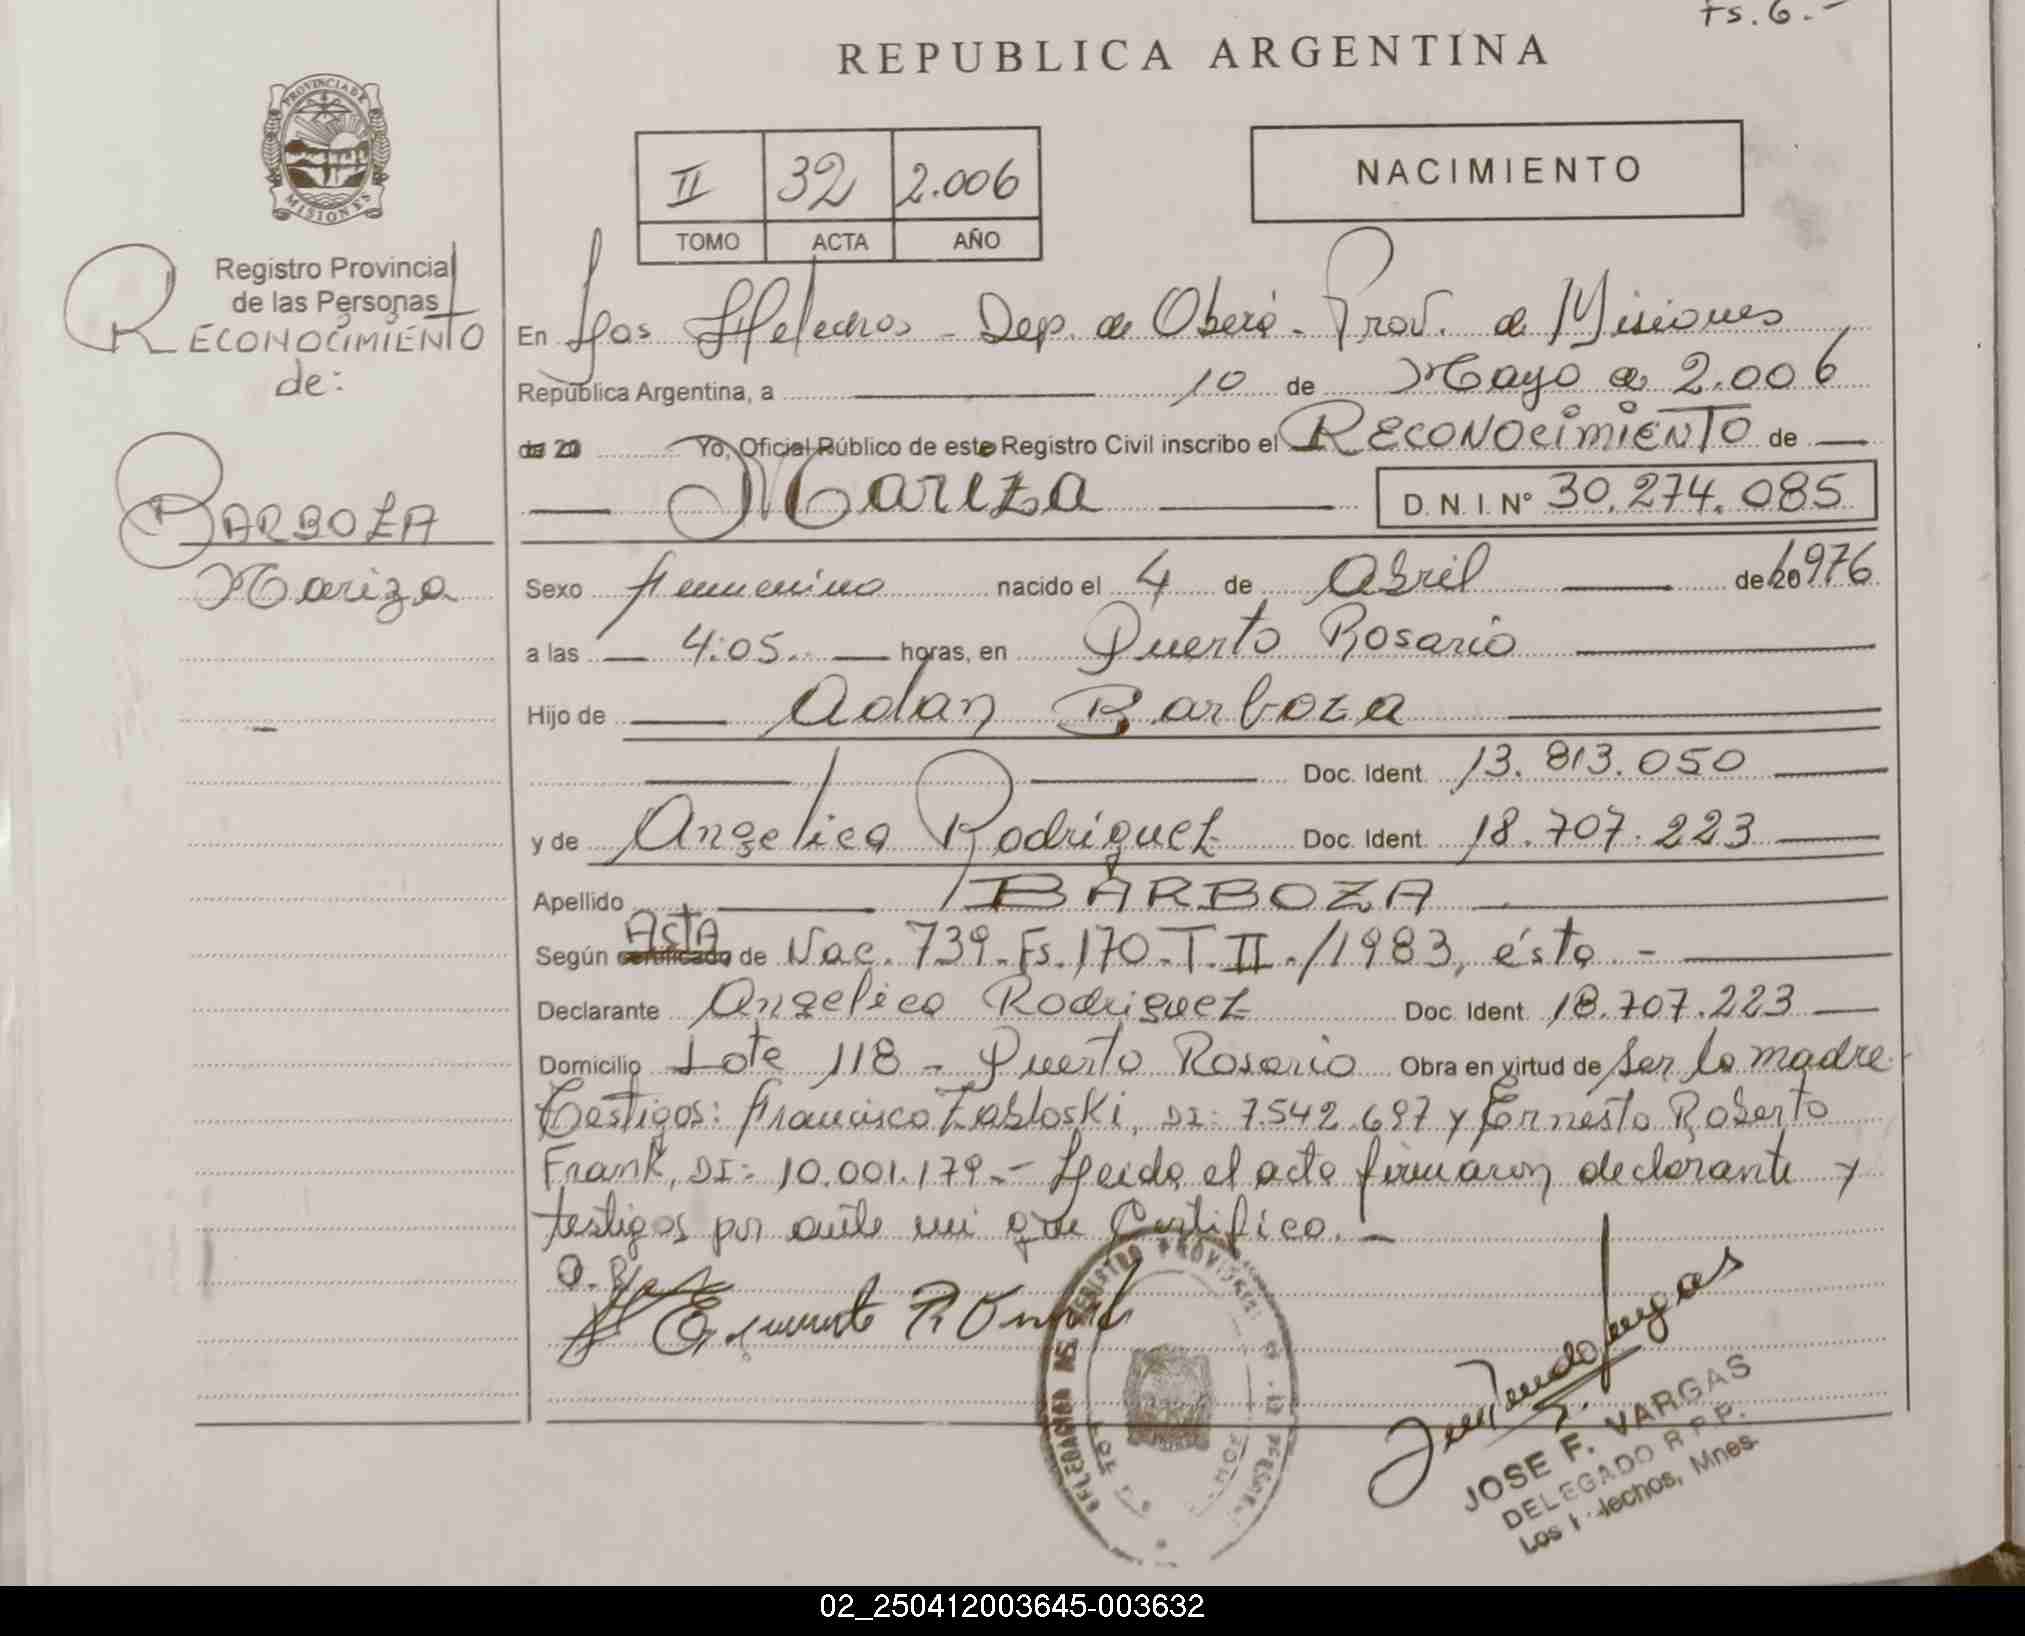 Fs. 6.-
REPUBLICA ARGENTINA
PROVINCIA DE
MISIONES
II 32 2.006
TOMO ACTA AÑO
NACIMIENTO
Registro Provincial
de las Personas
RECONOCIMIENTO
de:
BARBOZA
Mariza
En Los Helechos - Dep. de Oberá - Prov. de Misiones
República Argentina, a 10 de Mayo de 2.006
de 20 Yo, Oficial Público de este Registro Civil inscribo el RECONOCIMIENTO de
Mariza D. N. I. N° 30.274.085
Sexo femenino nacido el 4 de Abril de 20 1976
a las 4:05. horas, en Puerto Rosario
Hijo de Adan Barboza
Doc. Ident. 13.813.050
y de Angelica Rodriguez Doc. Ident. 18.707.223
Apellido BARBOZA
ActA
Según certificado de Nac. 739. Fs. 170. T. II. /1983, ésta -
Declarante Angelica Rodriguez Doc. Ident. 18.707.223
Domicilio Lote 118 - Puerto Rosario Obra en virtud de ser la madre.
Testigos: Francisco Zabloski, DI: 7.542.697 y Ernesto Roberto
Frank, DI: 10.001.179.- Leida el acta firmaron declarante y
testigos por ante mi que Certifico. -
DELEGACION DEL REGISTRO PROVINCIAL
JOSE F. VARGAS
DELEGADO R.P.P.
Los Helechos, Mnes.
02_250412003645-003632